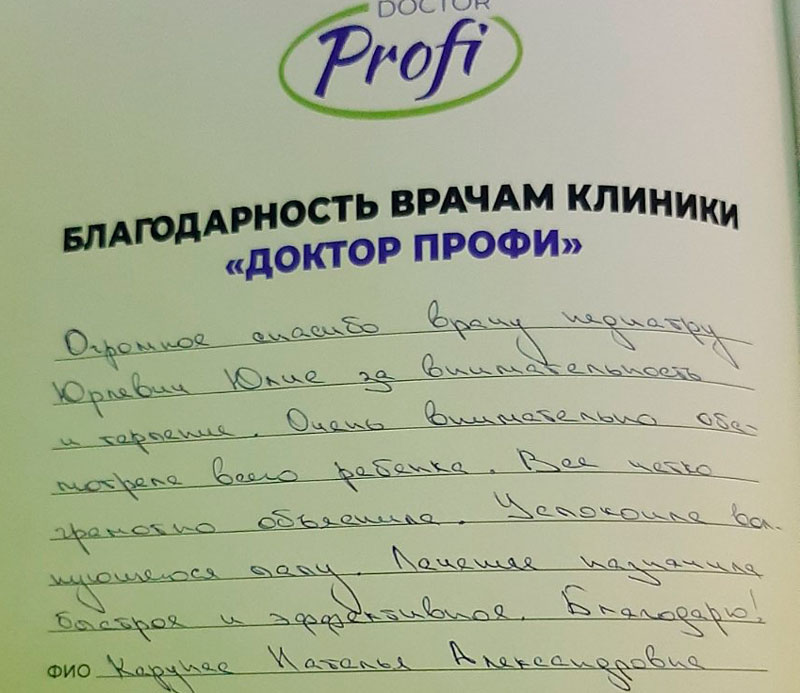 DOCTOR
Profi
БЛАГОДАРНОСТЬ ВРАЧАМ КЛИНИКИ
«ДОКТОР ПРОФИ»
Огромное спасибо врачу педиатру
Юрлевич Юлие за внимательность
и терпение. Очень внимательно обс-
мотрела всего ребенка. Все четко
грамотно объяснила. Успокоила вол-
нующегося папу. Лечение назначила
быстрое и эффективное. Благодарю!
ФИО Наталья Александровна